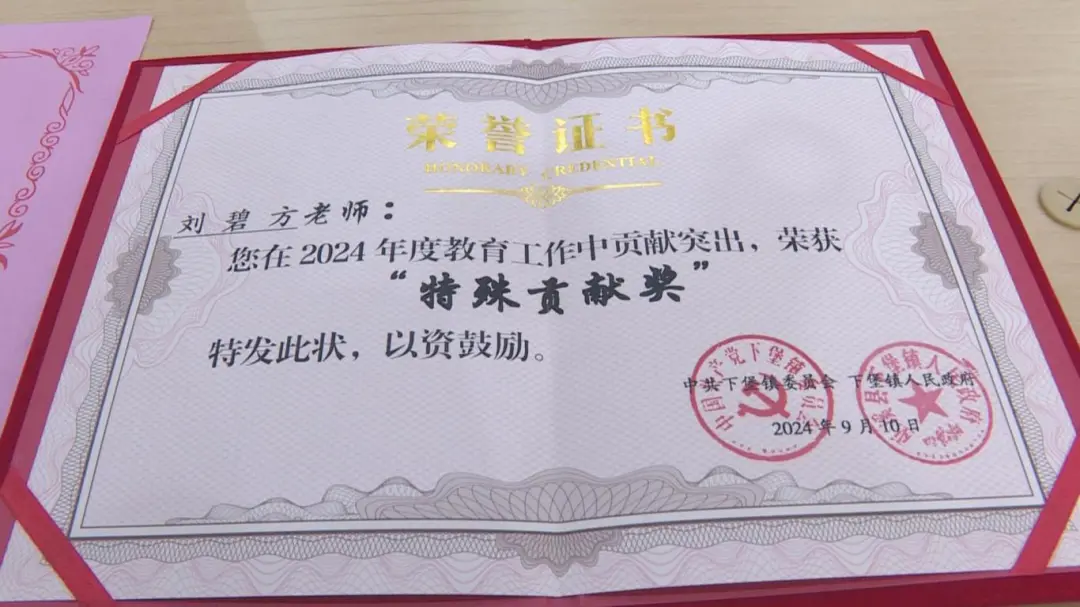 荣誉证书
HONORARY CREDENTIAL
刘碧方老师：
您在2024年度教育工作中贡献突出，荣获
“特殊贡献奖”
特发此状，以资鼓励。
中共下堡镇委员会 下堡镇人民政府
2024年9月10日
中国共产党下堡镇委员会
堡镇人民政府